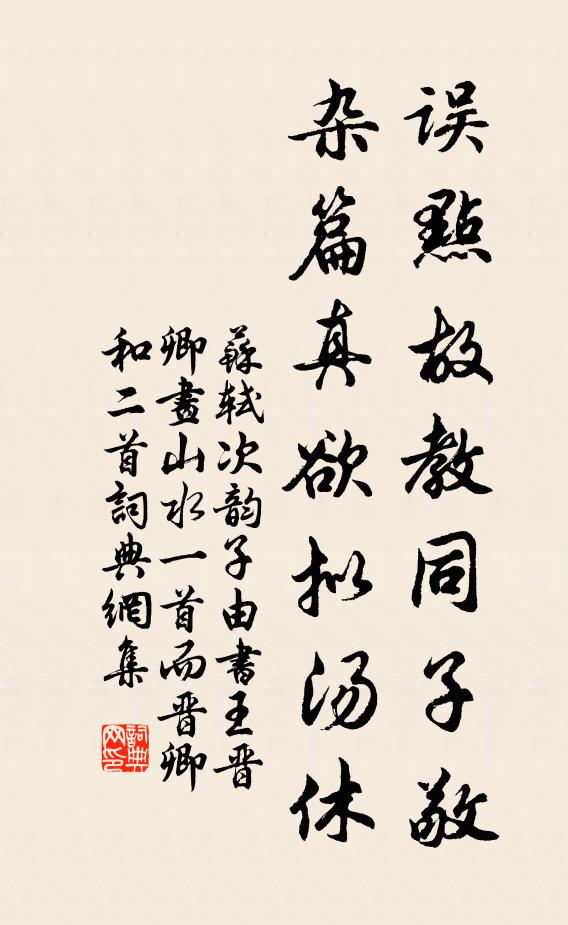 误點故教同子敬
杂篇真欲拟汤休
蘇轼次韵子由書王晋
卿畫山水一首而晋卿
和二首詞典網集
詞典
网印